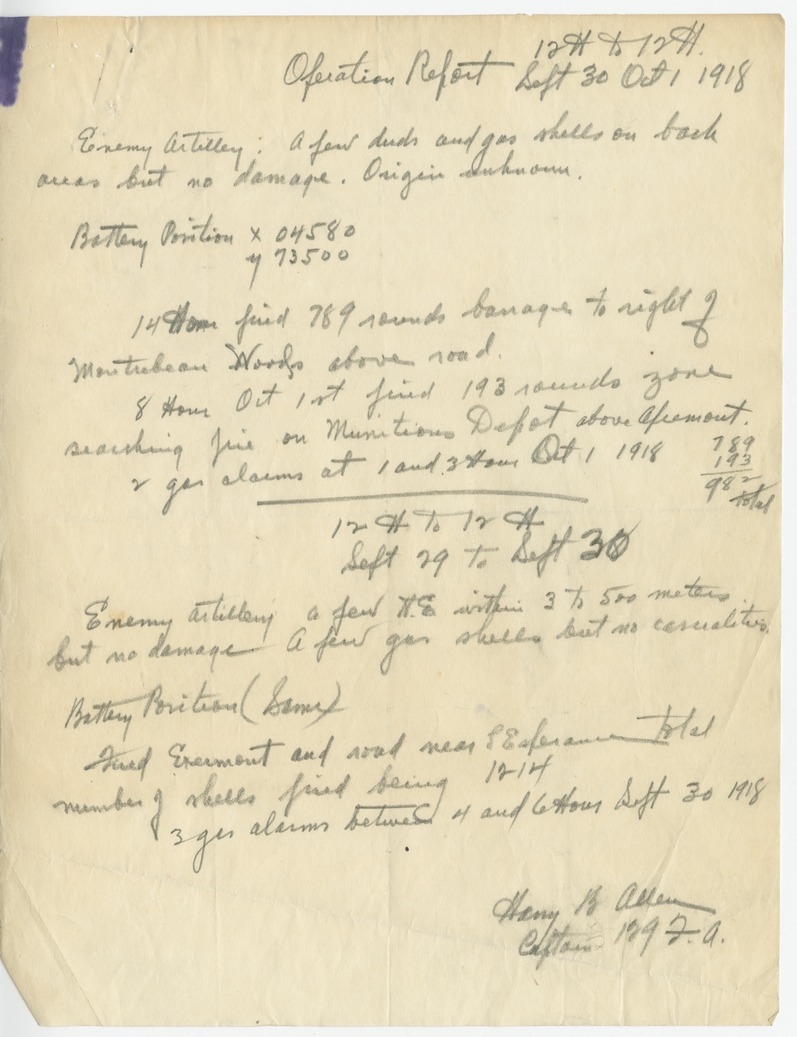 12H to 12H.
Operation Report Sept 30 Oct 1 1918
Enemy Artillery: A few duds and gas shells on back
areas but no damage. Origin unknown.
Battery Position x 04580
y 73500
14 Hour fired 789 rounds barrage to right of
Montrebeau Woods above road.
8 Hour Oct 1st fired 193 rounds zone
searching fire on Munitions Depot above Apremont.
2 gas alarms at 1 and 3 Hour Oct 1 1918
789
193
982
total
12 H to 12 H
Sept 29 to Sept 30
Enemy Artillery a few H.E. within 3 to 500 meters
but no damage A few gas shells but no casualities.
Battery Position (Same)
Fired Exermont and road near L'Esperance Total
number of shells fired being 1214
3 gas alarms between 4 and 6 Hour Sept 30 1918
Harry B Allen
Captain 129 F.A.